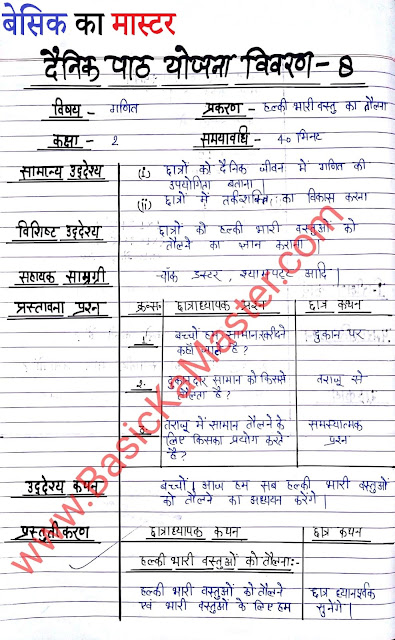 बेसिक का मास्टर
दैनिक पाठ योजना विवरण - 8
विषय - गणित प्रकरण - हल्की भारी वस्तु का तौलना
कक्षा - 2 समयावधि - 40 मिनट
सामान्य उद्देश्य (i) छात्रों को दैनिक जीवन में गणित की
उपयोगिता बताना।
(ii) छात्रों में तर्कशक्ति का विकास करना
विशिष्ट उद्देश्य छात्रों को हल्की भारी वस्तुओं को
तौलने का ज्ञान कराना।
सहायक सामग्री चॉक डस्टर, श्यामपट्ट आदि।
प्रस्तावना प्रश्न क्र०सं० छात्राध्यापक प्रश्न छात्र कथन
1. बच्चों हम सामान खरीदने दुकान पर
कहाँ जाते है?
2. दुकानदार सामान को किससे तराजू से
तौलता है?
3. तराजू में सामान तौलने के समस्यात्मक
लिए किसका प्रयोग करते प्रश्न
है?
उद्देश्य कथन बच्चों। आज हम सब हल्की भारी वस्तुओं
को तौलने का अध्ययन करेंगे।
प्रस्तुतीकरण छात्राध्यापक कथन छात्र कथन
हल्की भारी वस्तुओं को तौलना:-
हल्की भारी वस्तुओं को तौलने छात्र ध्यानपूर्वक
एवं भारी वस्तुओं के लिए हम सुनेंगे।
www.BasicKaMaster.com